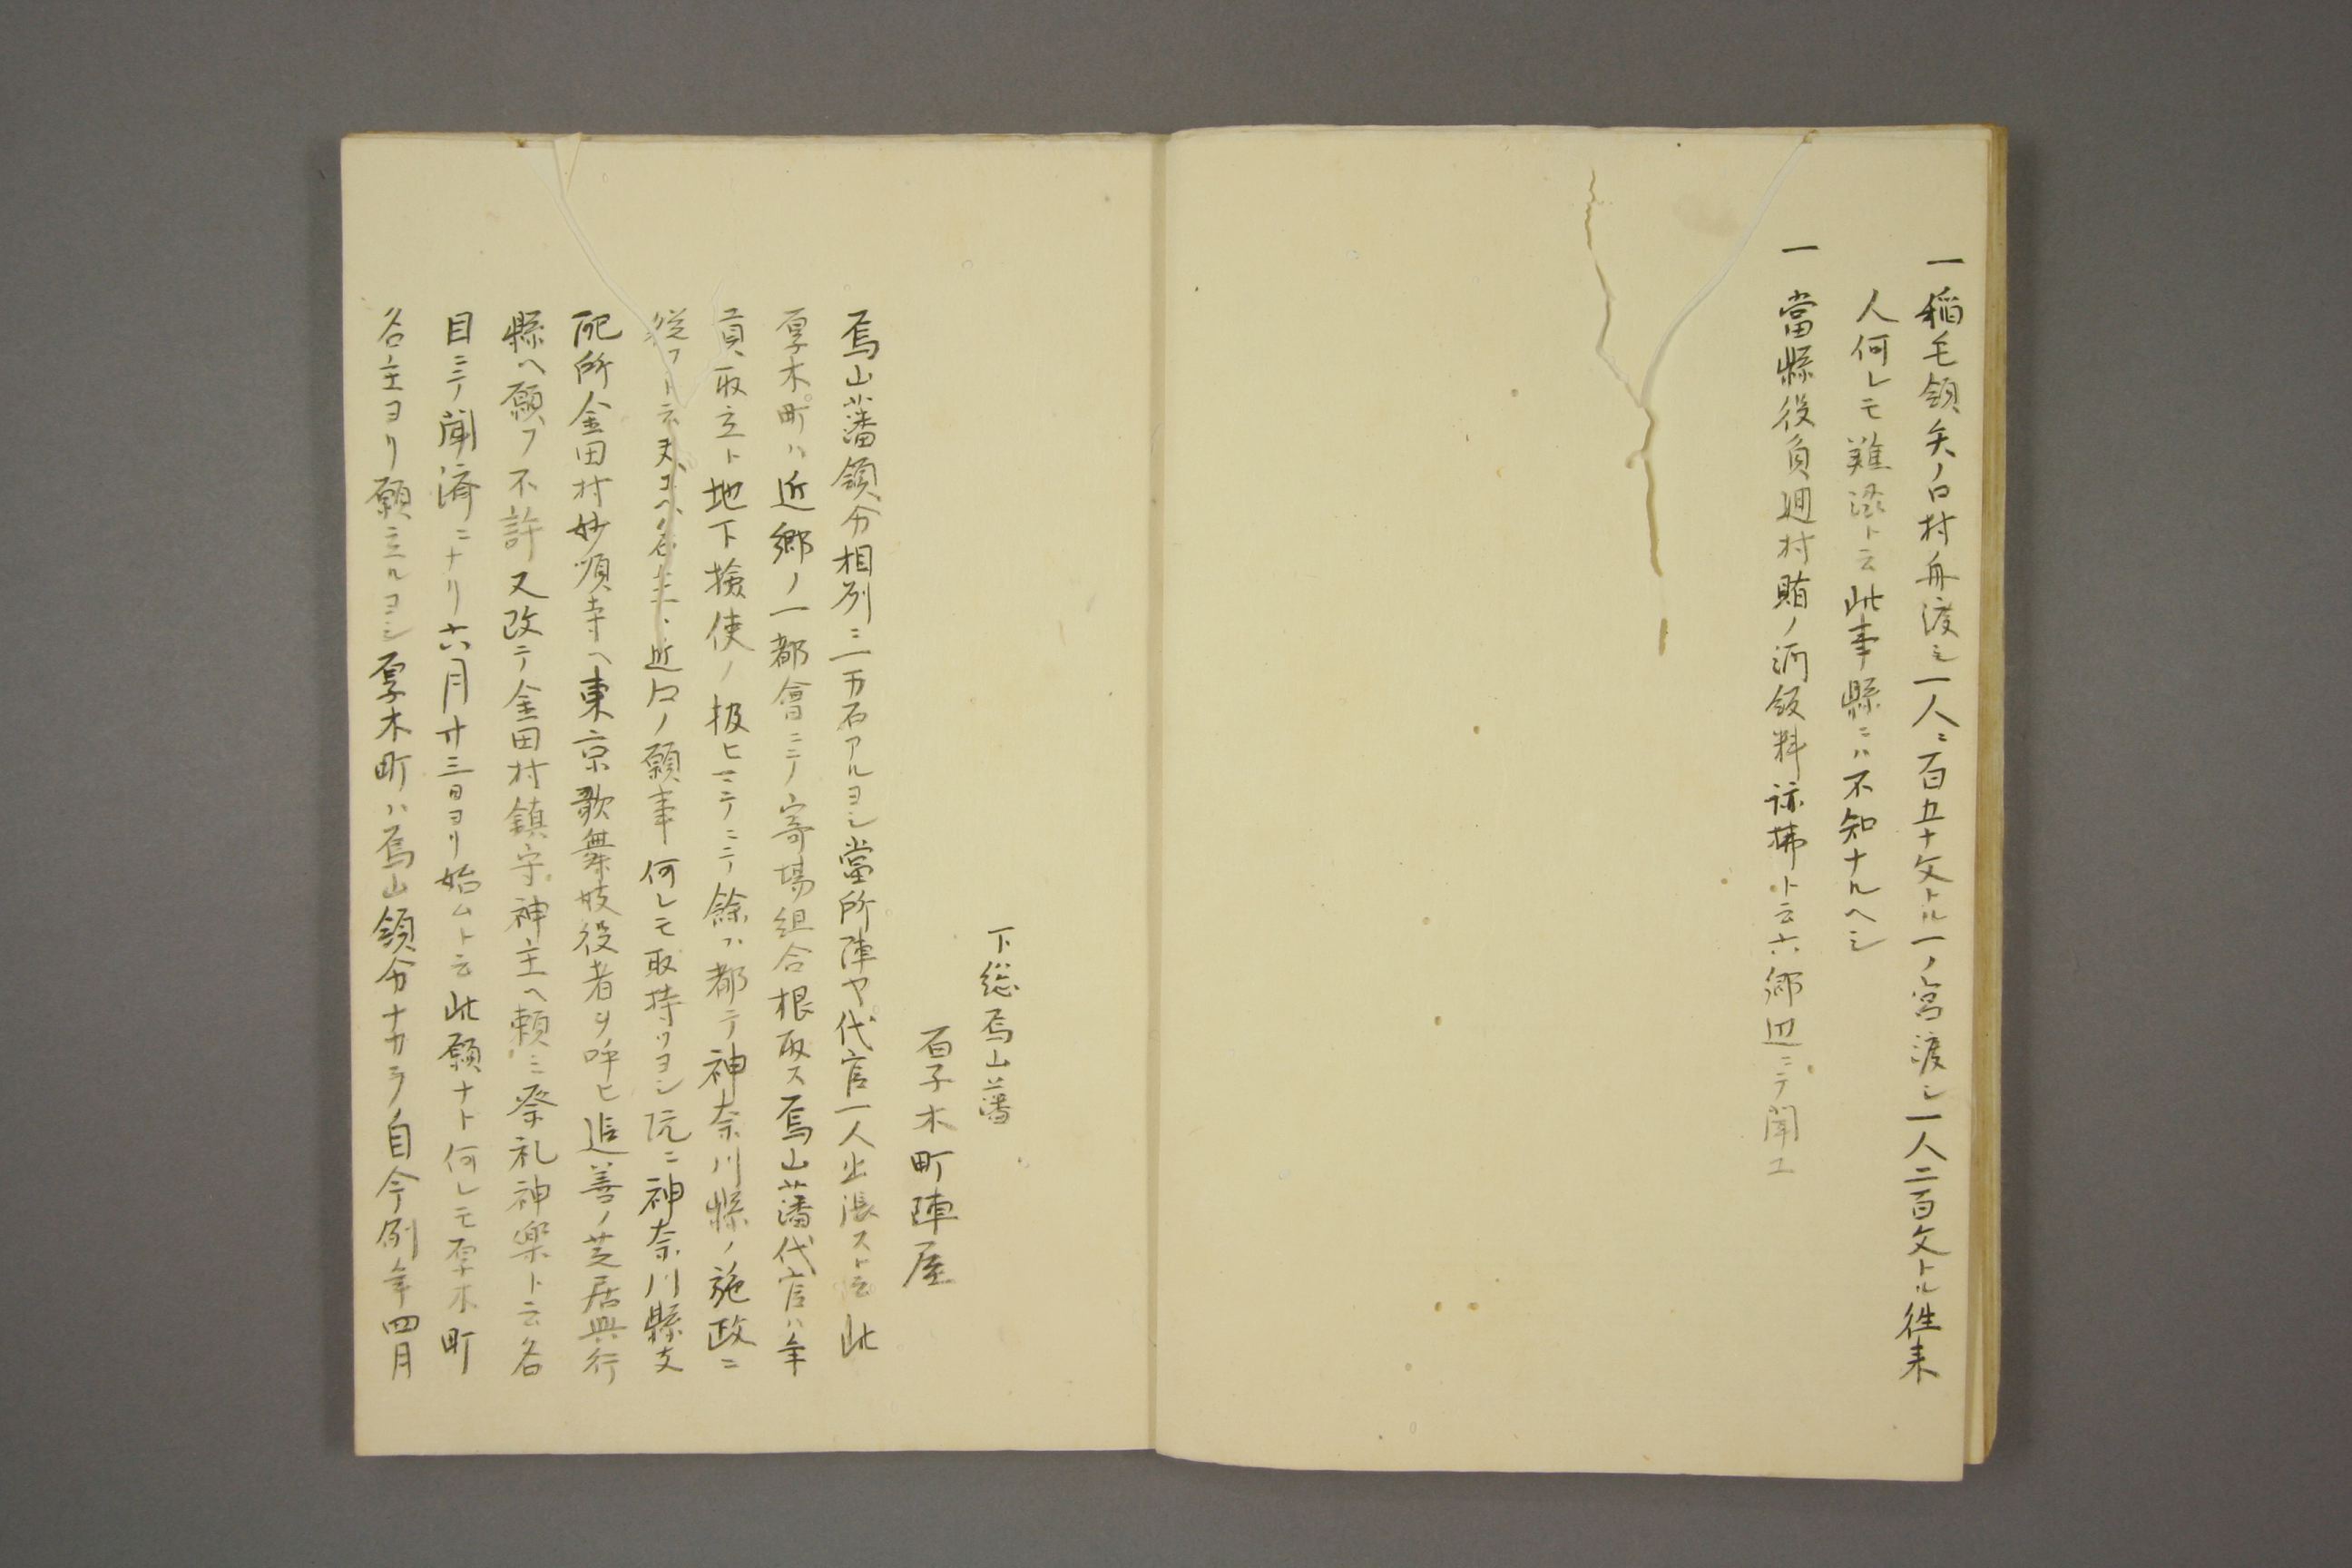 一稲毛領矢ノ口村舟渡シ一人ニ百五十文トル一ノ宮渡シ一人二百文トル往来
人何レモ難渋ト云此事縣ニハ不知ナルヘシ
一當縣役員廻村賄ノ酒飯料諒拂ト云六郷辺ニテ聞エ
下総烏山藩
厚木町陣屋
烏山藩領分相刕ニ一万石アルヨシ當所陣ヤ代官一人出張スト云此
厚木町ハ近郷ノ一都會ニテ寄場組合根取ス烏山藩代官ハ年
貢取立ト地下撿使ノ扱ヒニテ餘ハ都テ神奈川縣ノ施政ニ
従フト云夫ユヘ名主ハ近村ノ願事何レモ取持ツヨシ既ニ神奈川縣支
配所金田村妙順寺ヘ東京歌舞妓役者ヲ呼ヒ追善ノ芝居興行
縣ヘ願フ不許又改テ金田村鎮守神主ヘ頼ミ祭礼神楽ト云名
目ニテ聞済ニナリ六月廿三日ヨリ始ムト云此願ナト何レモ厚木町
名主ヨリ願立ルヨシ厚木町ハ烏山領分ナカラ自今例年四月